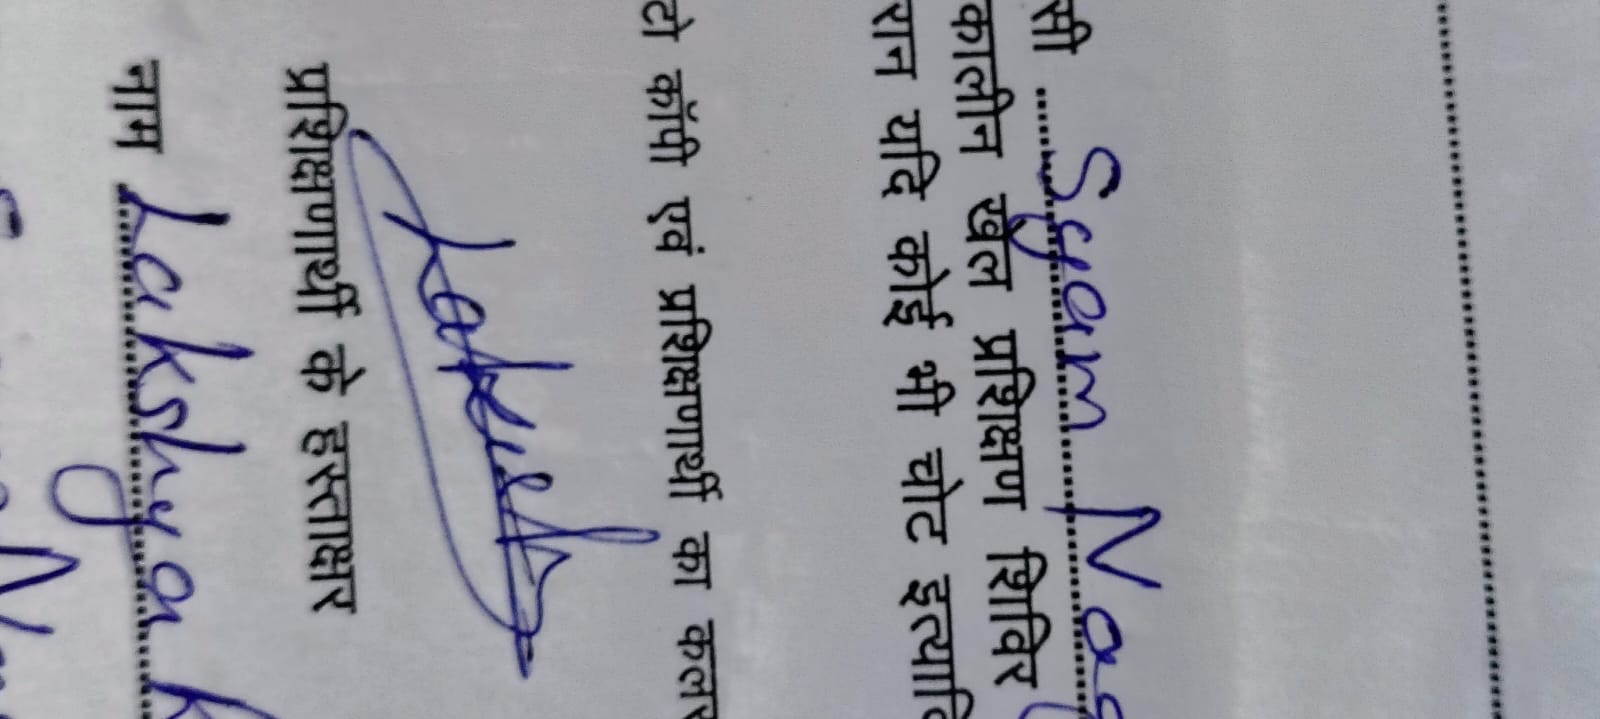 सी ........ Syam Nag
कालीन खेल प्रशिक्षण शिविर
रान यदि कोई भी चोट इत्यादि
टो कॉपी एवं प्रशिक्षणार्थी का कलर
प्रशिक्षणार्थी के हस्ताक्षर
नाम Lakshya k